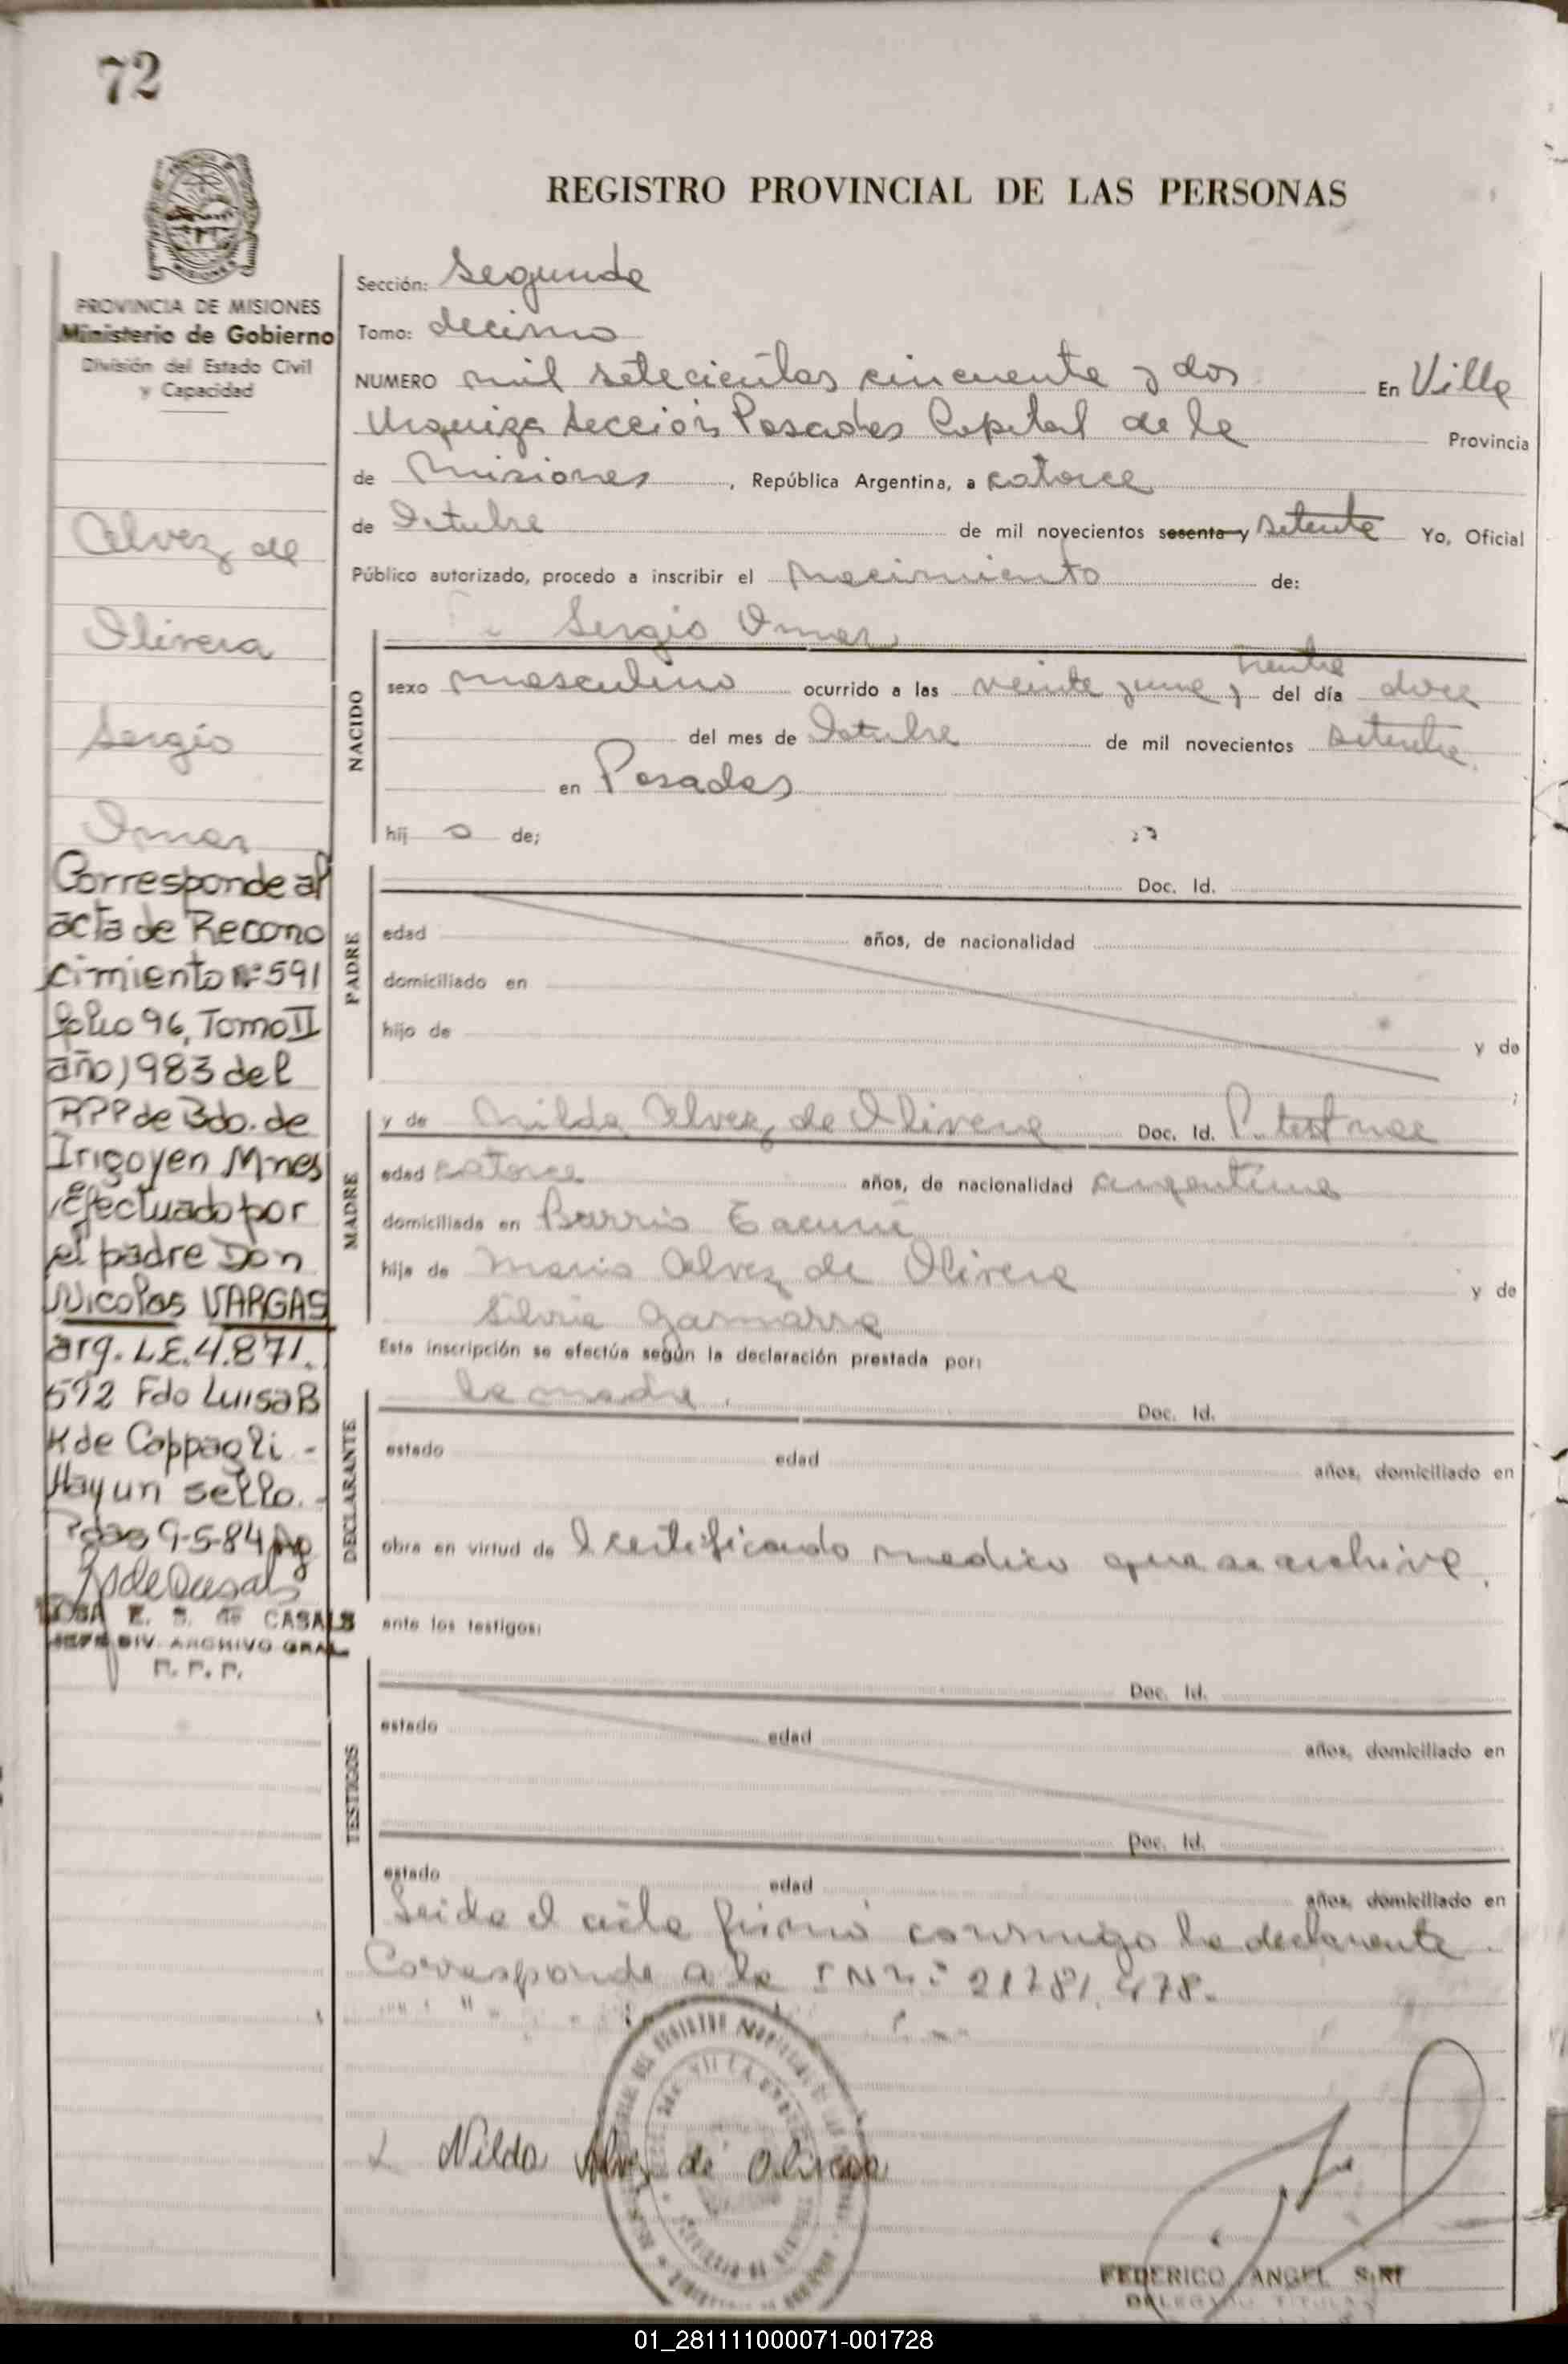 72
REGISTRO PROVINCIAL DE LAS PERSONAS
MISIONES
PROVINCIA DE MISIONES
Ministerio de Gobierno
División del Estado Civil
y Capacidad
Alvez de
Olivera
Sergio
Omar
Corresponde al
acta de Recono
cimiento Nº 591
folio 96, Tomo II
año 1983 del
RPP de Bdo. de
Irigoyen Mnes
Efectuado por
el padre Don
Nicolas VARGAS
arg. L.E. 4.871.
592 Fdo Luisa B
K de Coppagli -
Hay un sello. -
Pdas 9-5-84
E. S. de CASALS
JEFE DIV. ARCHIVO GRAL
R. P. P.
Sección: Segunda
Tomo: decimo
NUMERO mil setecientos cincuenta y dos En Villa
Urquiza Sección Posadas Capital de la Provincia
de Misiones, República Argentina, a catorce
de Octubre de mil novecientos sesenta y setenta Yo, Oficial
Público autorizado, procedo a inscribir el nacimiento de:
NACIDO
Sergio Omar
treinta
sexo masculino ocurrido a las veinte y una y del día doce
del mes de Octubre de mil novecientos setenta
en Posadas
hij o de;
PADRE
Doc. Id.
edad años, de nacionalidad
domiciliado en
hijo de y de
;
MADRE
y de Nilda Alvez de Olivera Doc. Id. P. test nac
edad catorce años, de nacionalidad argentina
domiciliada en Barrio Tacurú
hija de Mario Alvez de Olivera y de
Silvia Gamarra
Esta inscripción se efectúa según la declaración prestada por:
DECLARANTE
la madre. Doc. Id.
estado edad años, domiciliado en
obra en virtud de certificado medico que se archiva.
ante los testigos:
TESTIGOS
Doc. Id.
estado edad años, domiciliado en
Doc. Id.
estado edad años, domiciliado en
Leida el acta firmó conmigo la declarante.
Corresponde a la 21.781.478.
Nilda Alvez de Olivera
FEDERICO ANGEL
DELEGADO TITULAR
01_281111000071-001728